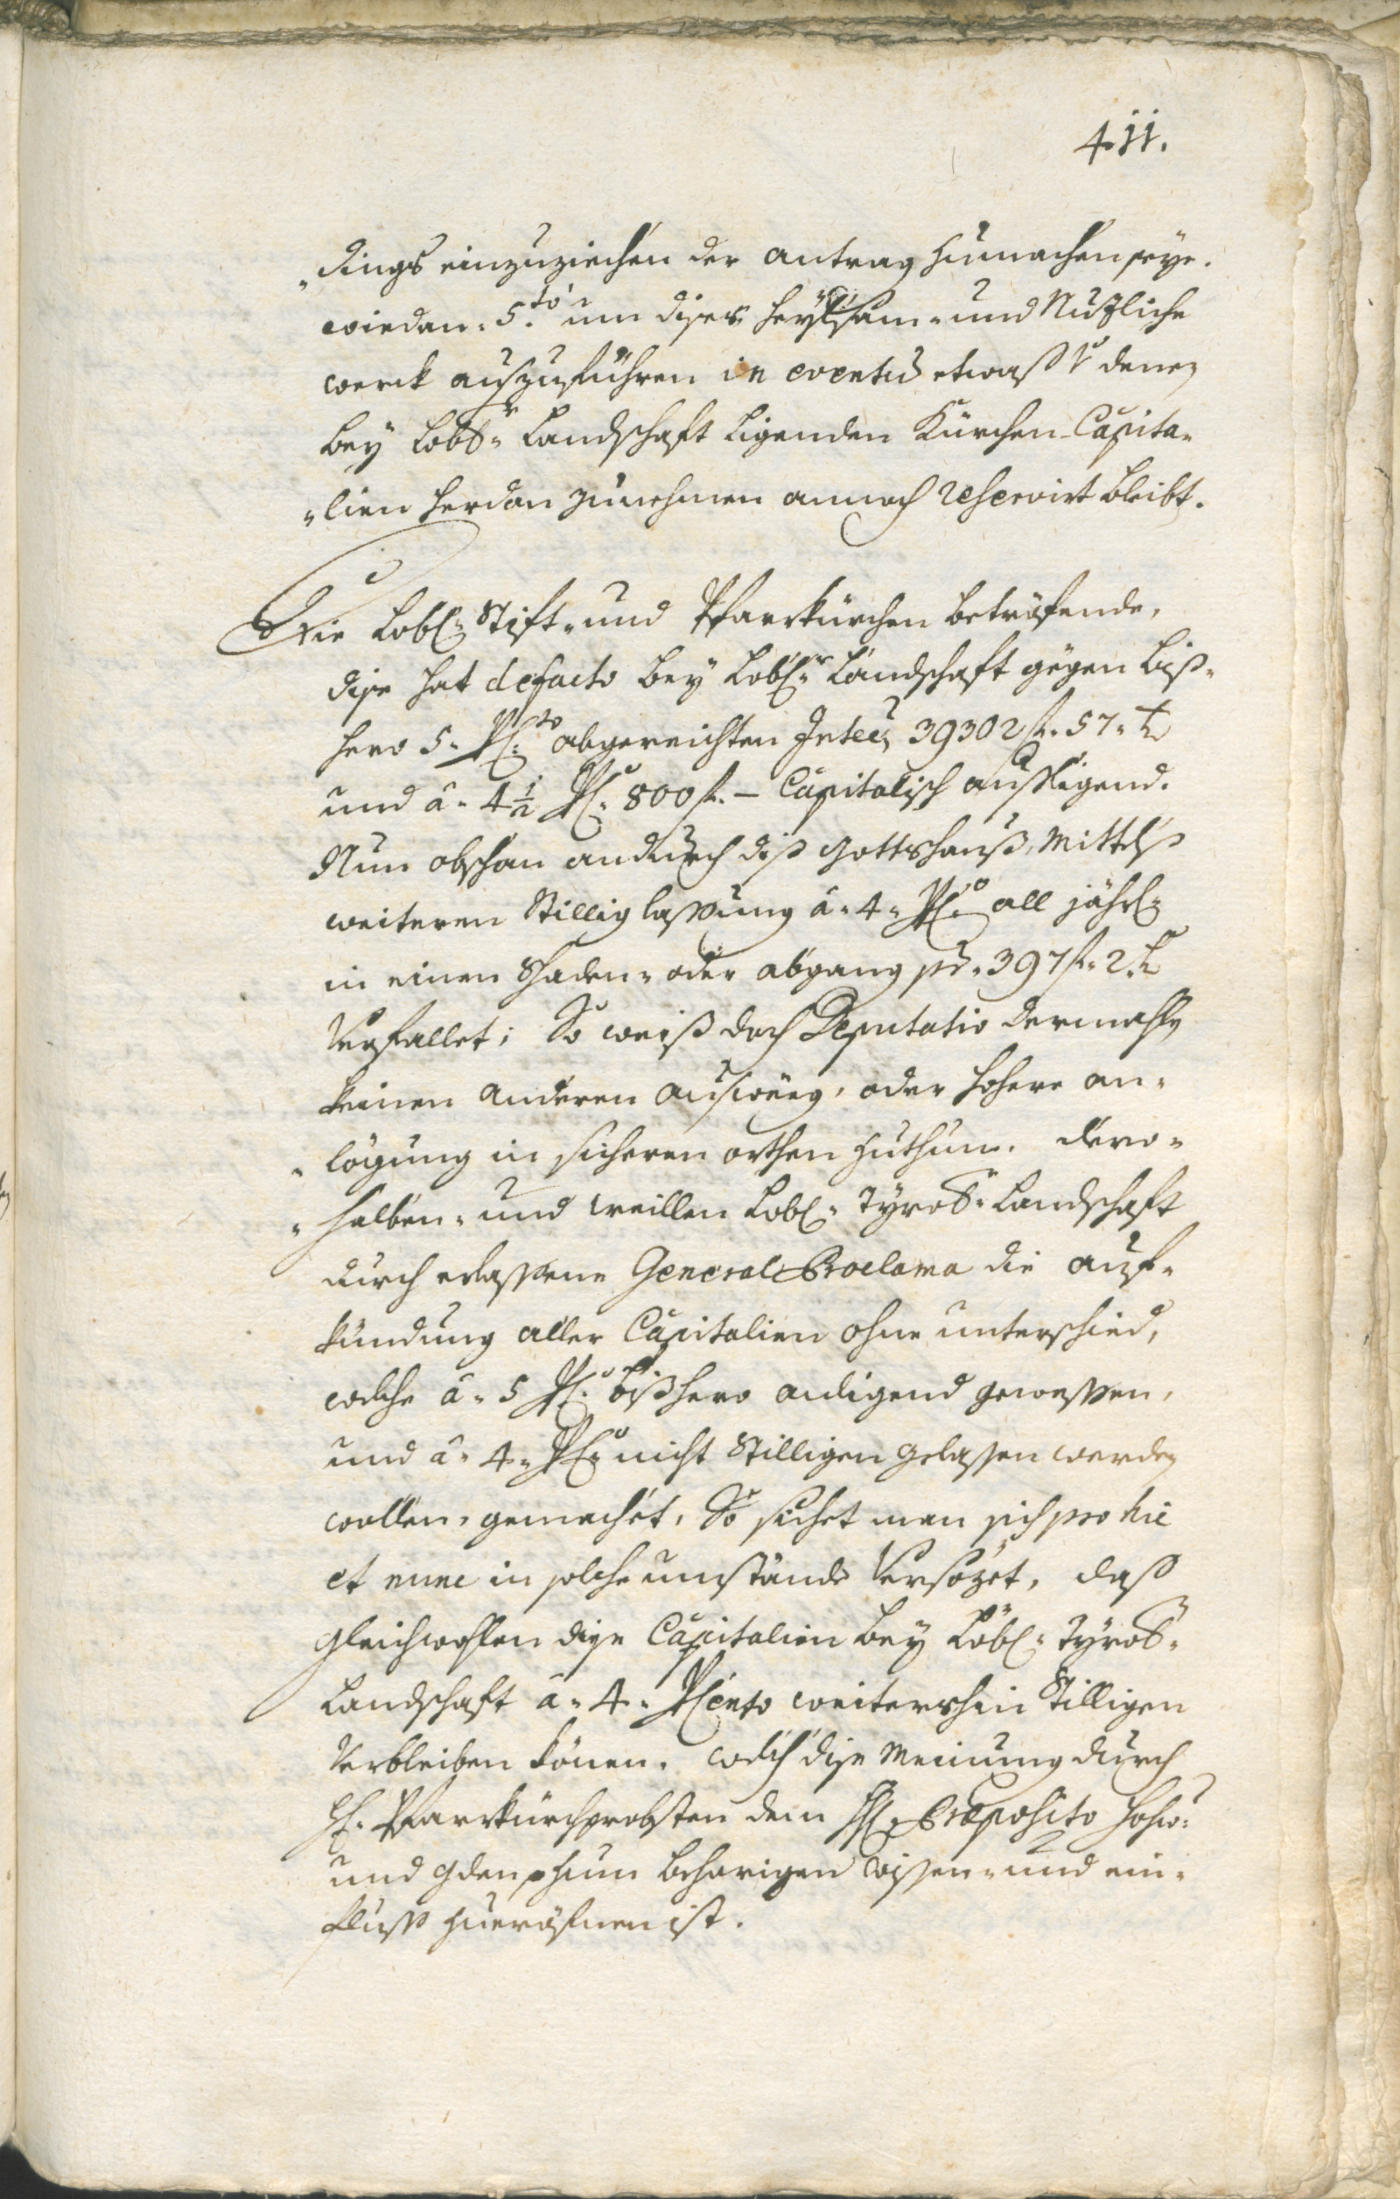 411.
„dings einzuziechen der antrag zumachen seye.
wie dan. 5.to um dises heylsam- und Nuzliche
werck auszuführen in eventu etwaß v denen
bey Lobl.r Landschaft ligenden Kürchen-Capita-
„lien herdan zunehmen annoch reservirt bleibt.
Die Lobl. Stift- und Pfarrkürchen beträfende,
dise hat defacto bey Lobl.r Landschaft gegen biß-
hero 5. PC.to abgereichten Interes 39302 f. 57. kr
und â. 4 1/2 PC. 800 f. – Capitalisch aussligend.
Nun obschon andurch diß Gottshauß, Mittelß
weiteren Stilliglassung â. 4. PC.o all jährl.
in einen Schaden- oder abgang pr. 397 f. 2. kr
Verfallet; So weiß doch Deputatio dermahlen
keinen anderen ausweeg, oder höhere an-
„lögung in sicheren orthen zuthun. dero-
„halben- und weillen Lobl. Tyrol. Landschaft
durch erlassene General Proclama die auf-
kündung aller Capitalien ohne unterschied,
welche â. 5 PC.o bißhero anligend gewessen,
und â. 4. PC.o nicht Stilligen gelassen werden
wollen, gemachet, So sichet man sich pro hic
et nunc in solche umstände Versözet, daß
gleichwohlen dise Capitalien bey Löbl. Tyrol.
Landschaft â. 4. PCento weitershin Stilligen
Verbleiben könen. welch dise Meinung durch
H. Pfarrkürchprobsten dem H. Præposito hochw.
und Gden zum behörigen wissen- und ein-
fluss zueröfnen ist.